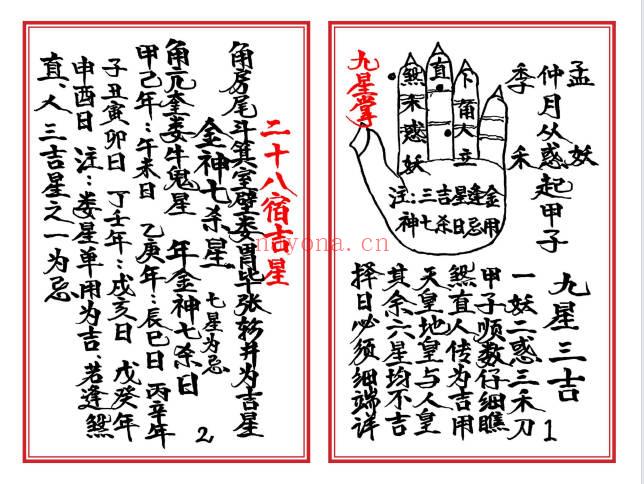 孟 妖
仲月从惑起甲子
季 禾
卜角人立
直
煞禾惑妖
注:三吉星逢金
神七杀日忌用
九星掌
九星三吉
一妖二惑三禾刀
甲子顺数仔细瞧
煞直人传为吉用
天皇地皇与人皇
其余六星均不吉
择日必须细端详
1
二十八宿吉星
角房尾斗箕室壁娄胃毕张轸井为吉星
金神七杀星 七星为忌
角亢奎娄牛鬼星 年金神七杀日
甲己年:午未日 乙庚年:辰巳日 丙辛年
子丑寅卯日 丁壬年:戌亥日 戊癸年
申酉日 注:娄星单用为吉、若逢煞
直、人三吉星之一为忌
2,
nayona.cn